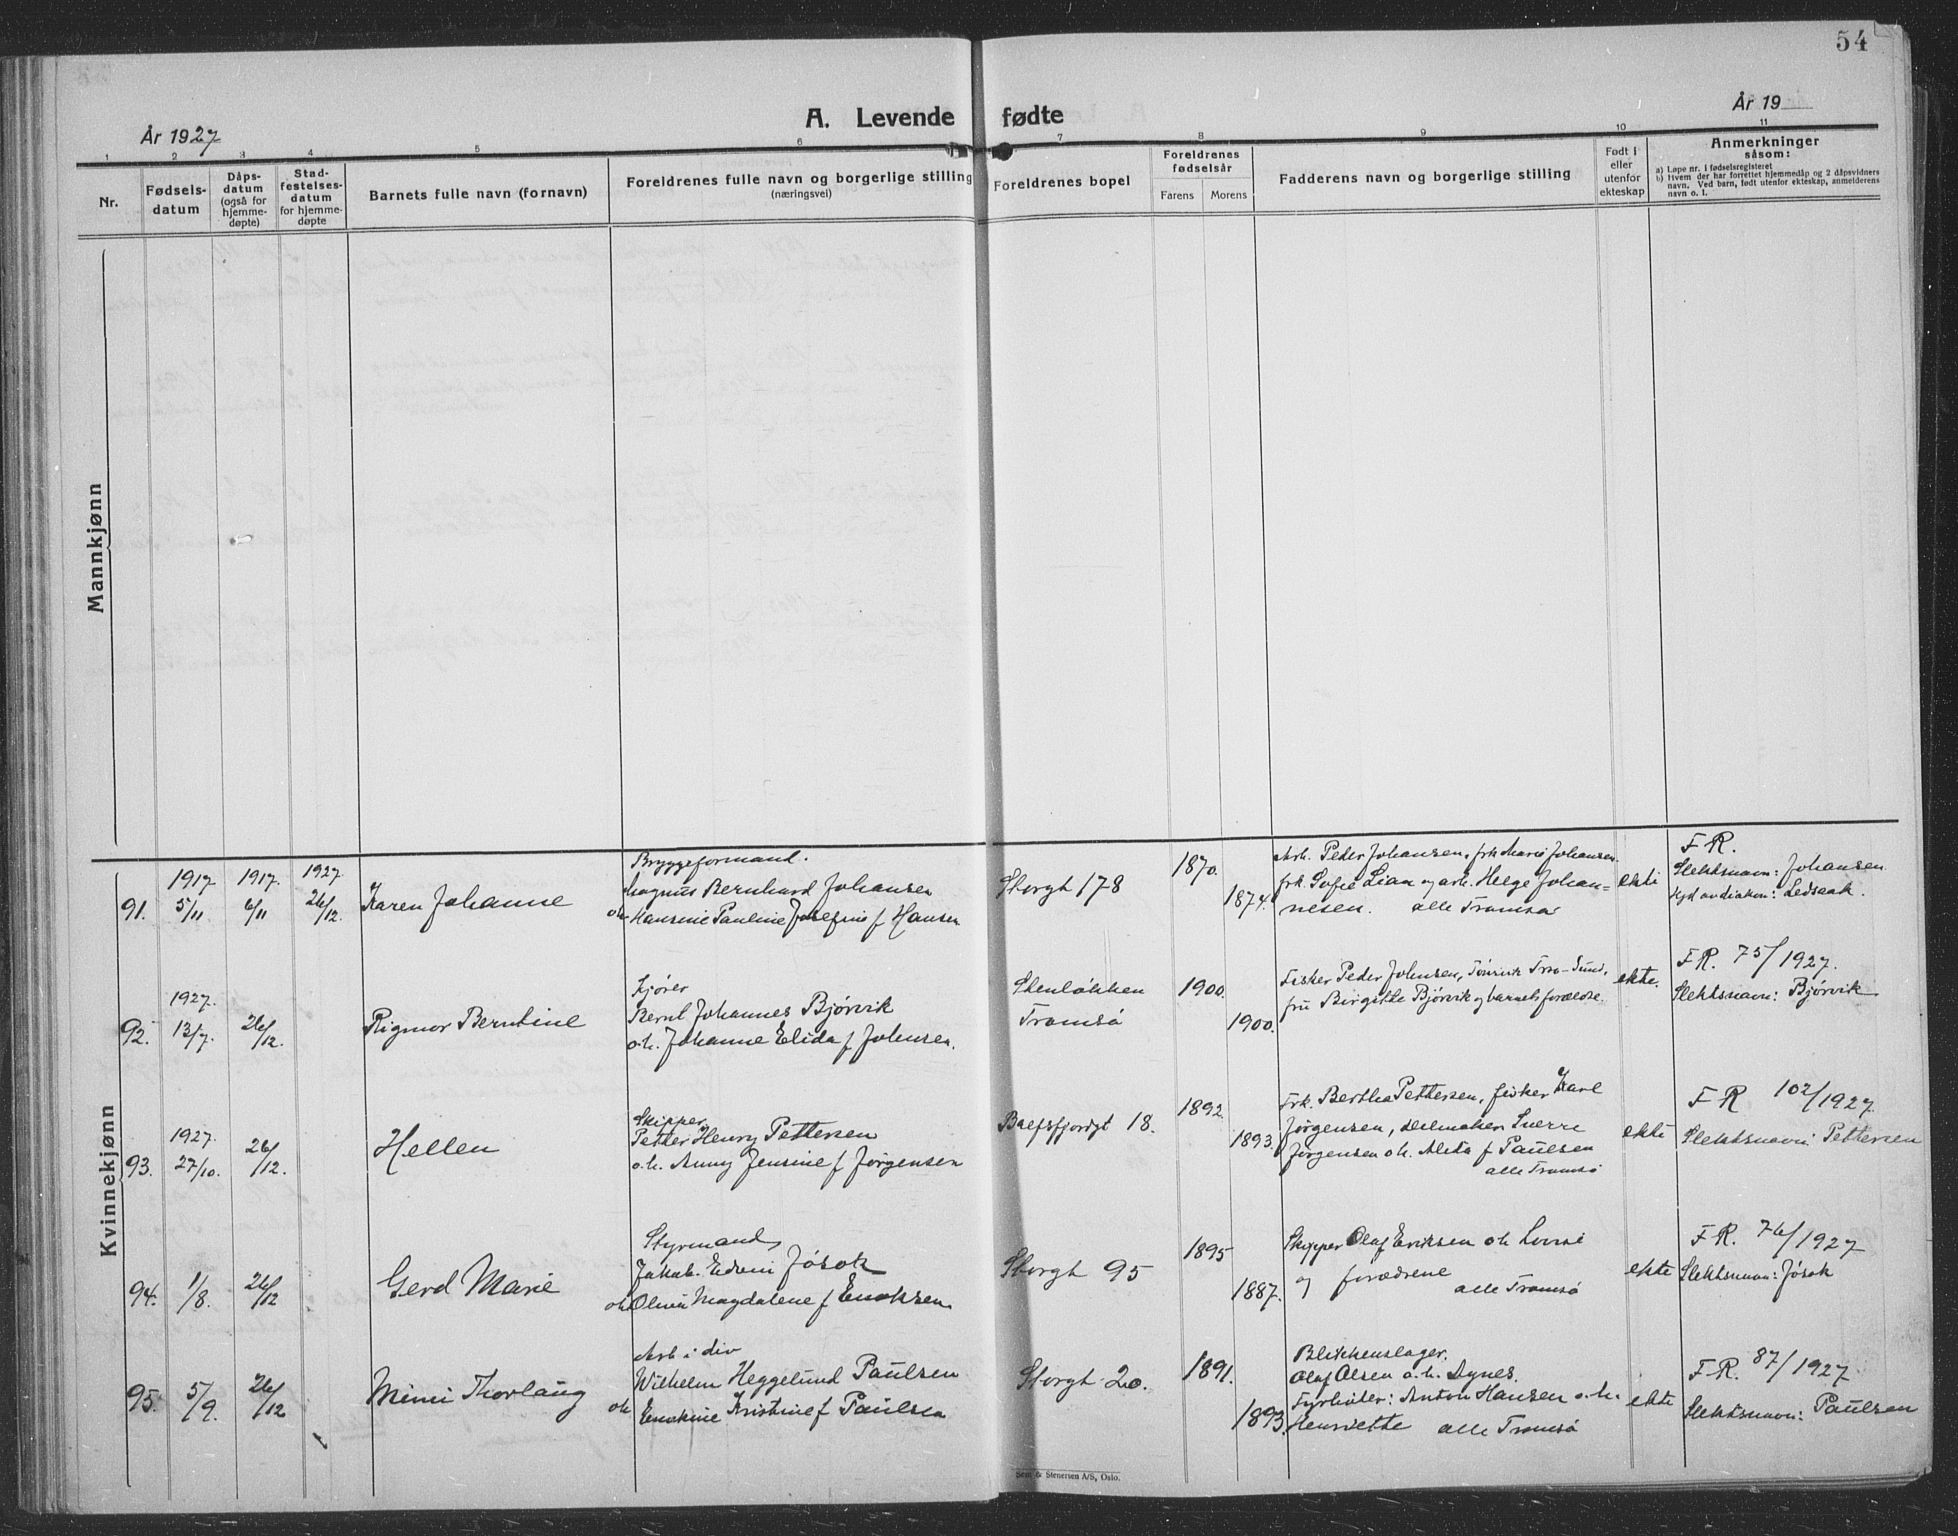 54
A. Levende fødte
År 1927
År 19
1 2 3 4 5 6 7 8 9 10 11
Nr.
Fødsels-
datum
Dåps-
datum
(også for
hjemme-
døpte)
Stad-
festelses-
datum
for hjemme-
døpte
Barnets fulle navn (fornavn)
Foreldrenes fulle navn og borgerlige stilling
(næringsvei)
Foreldrenes bopel
Foreldrenes
fødselsår
Farens Morens
Fadderens navn og borgerlige stilling
Født i
eller
utenfor
ekteskap
Anmerkninger
såsom:
a) Løpe nr. i fødselsregisteret
b) Hvem der har forrettet hjemmedåp og 2 dåpsvidners
navn. Ved barn, født utenfor ekteskap, anmelderens
navn o. l.
Mannkjønn
Kvinnekjønn
91.
1917 5/11
1917. 6/11
1927 26/12.
Karen Johanne
Bryggeformand.
Magnus Bernhard Johansen
o h Hansine Pauline Josefine f Hansen
Storgt 178
1870.
1874.
Arb. Peder Johansen, frk Marie Johansen
frk. Sofie Lian og arb. Helge Johan-
nesen. alle Tromsø
ekte
F R.
Slektsnavn: Johansen
92.
1927. 13/7.
26/12.
Rigmor Berntine
Kjører
Bernt Johannes Bjørvik
o.h. Johanne Elida f Johnsen.
Stenløkken
Tromsø
1900.
1900.
Fisker Peder Johnsen,
fru Birgitte Bjørvik og barnets forældre.
ekte.
F R. 75/1927.
Slektsnavn: Bjørvik
93.
1927. 27/10.
26/12.
Hellen
Skipper
Petter Henry Pettersen
o.h. Anny Jensine f Jørgensen
Balsfjordgt 18.
1892.
1893.
Frk. Bertha Pettersen, fisker Karl
Jørgensen, seilmaker Sverre
Jørgensen o h. Alida f Paulsen
alle Tromsø
ekte
F R 102/1927.
Slektsnavn: Pettersen
94.
1/8.
26/12
Gerd Marie
Styrmand
Jakob Edvin Jøsok
o h Oline Magdalene f Enoksen
Storgt 95
1895
1887.
Skipper Olaf Eriksen o h Lovise
og forældrene
alle Tromsø
ekte
F R. 76/1927
Slektsnavn: Jøsok
95.
5/9.
26/12
Mimi Thorlaug
Arb i div
Wilhelm Heggelund Paulsen
o h Enokine Kristine f Paulsen
Storgt 20.
1891.
1893.
Blikkenslager.
Olaf Olsen o.h. Agnes.
Fyrbøter: Anton Hansen o.h.
Henriette alle Tromsø
ekte
F R. 87/1927.
Slektsnavn: Paulsen
Sem & Stenersen A/S, Oslo.